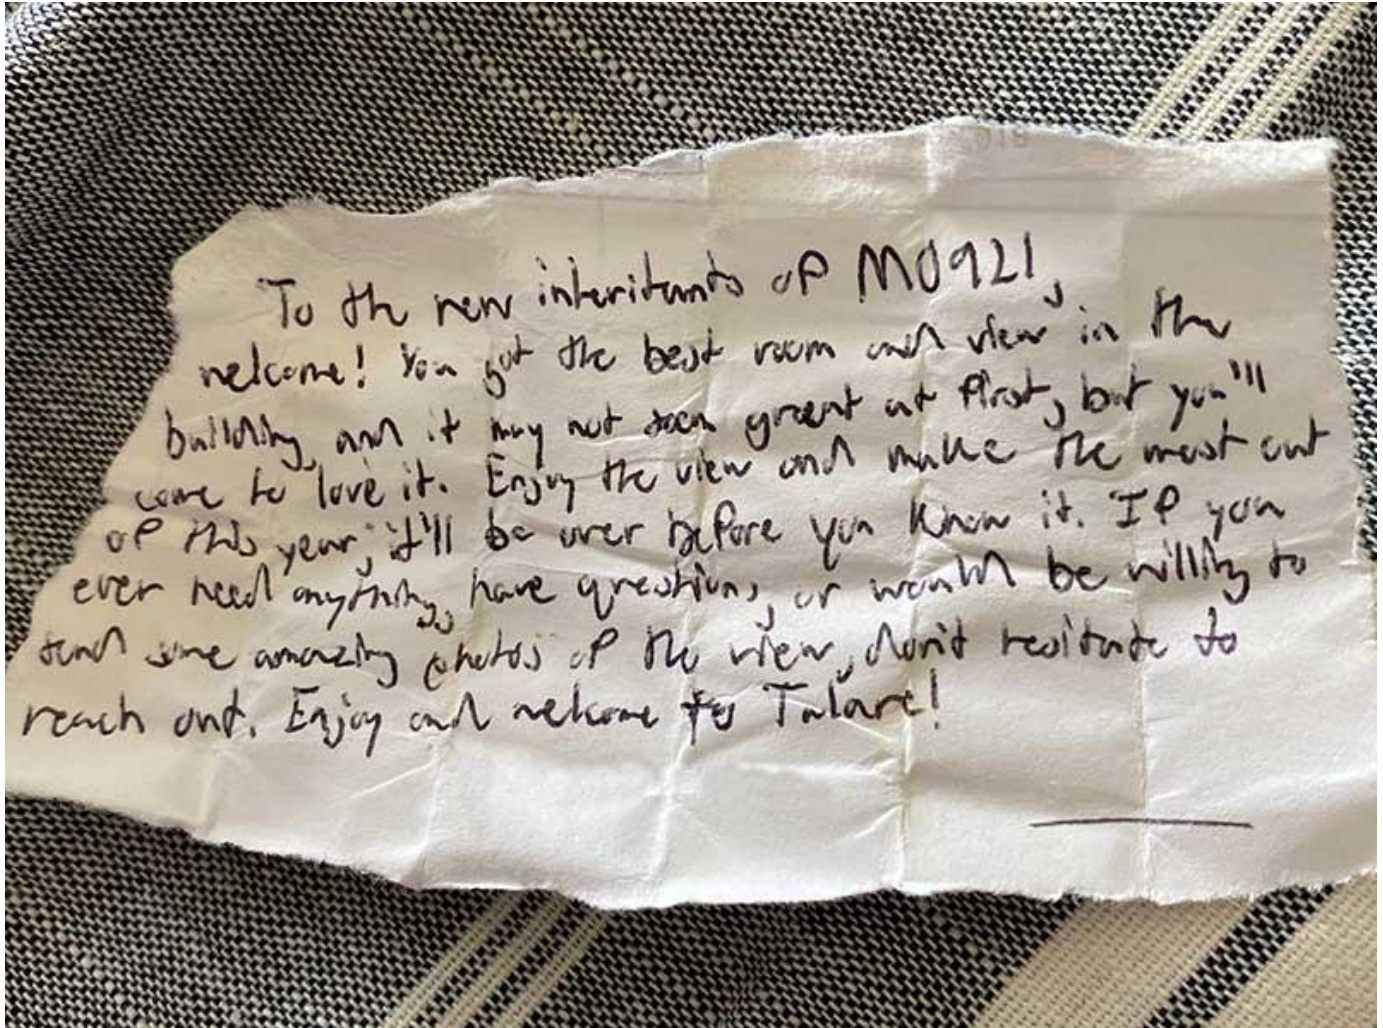 To the new inheritants of M0921,
welcome! You got the best room and view in the
building, and it may not seem great at first, but you'll
come to love it. Enjoy the view and make the most out
of this year, it'll be over before you know it. If you
ever need anything, have questions, or would be willing to
send some amazing photos of the view, don't hesitate to
reach out. Enjoy and welcome to Talare!